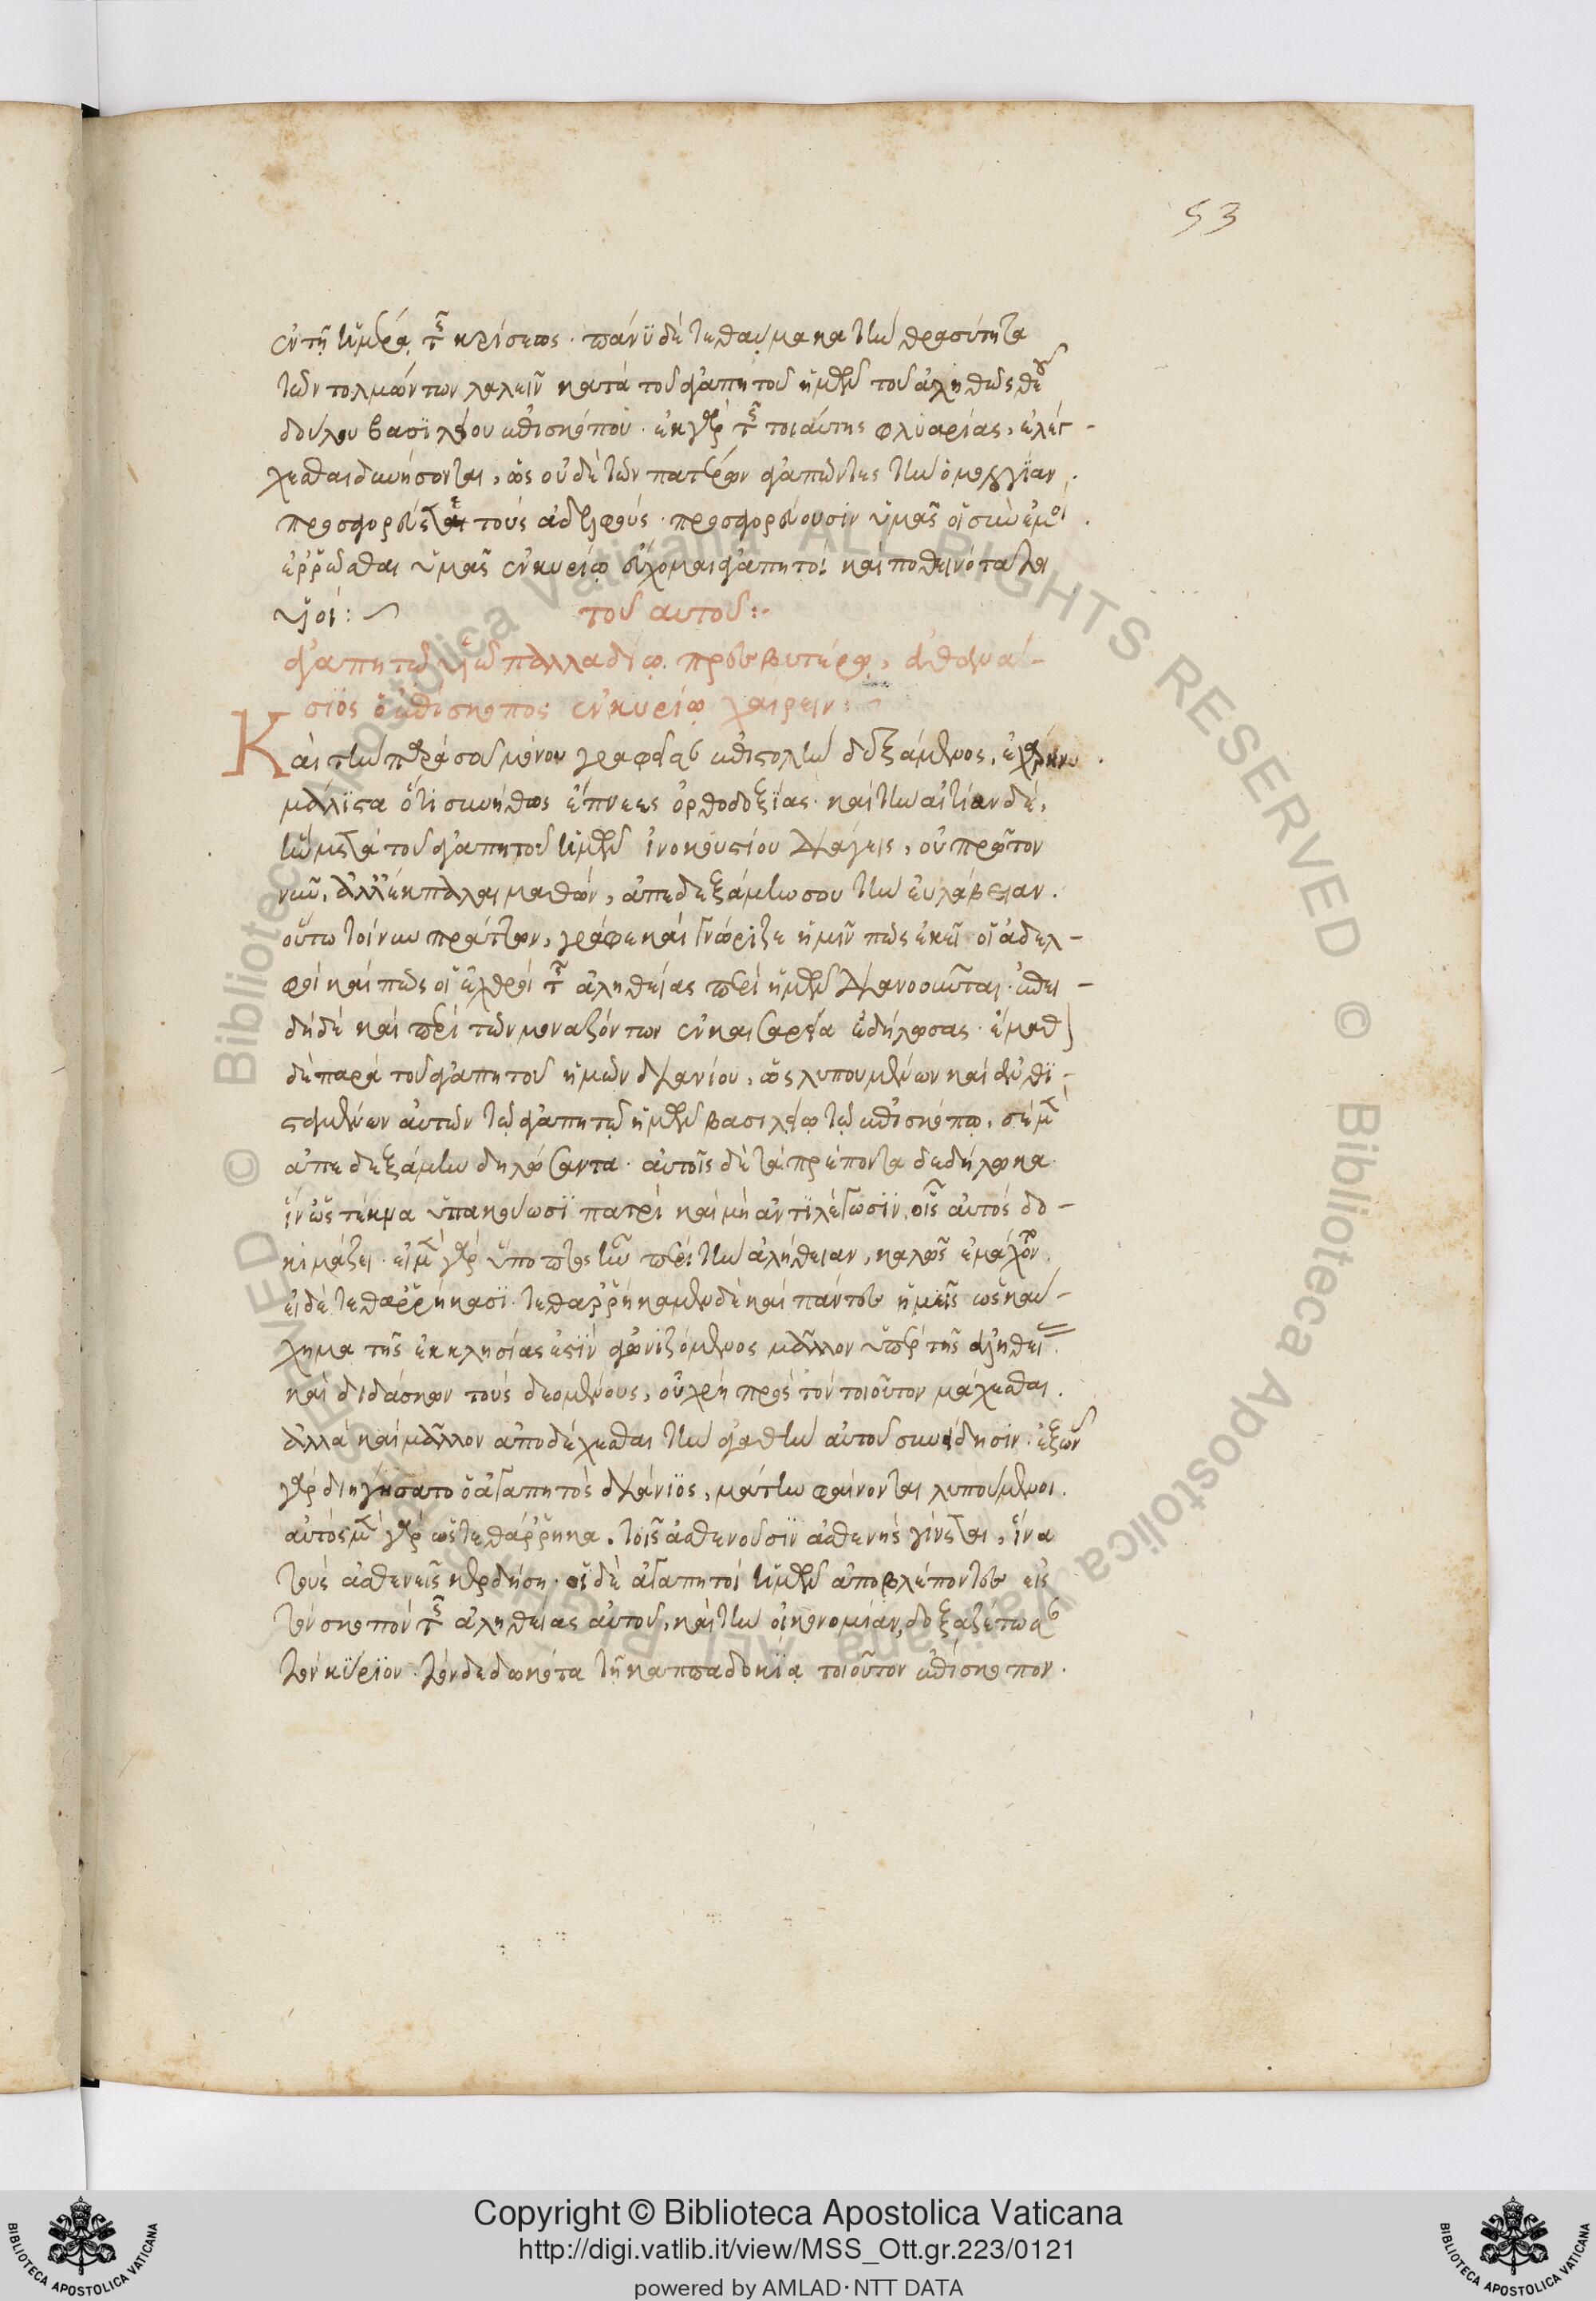 53
ἐν τῇ ἡμέρᾳ τῆς κρίσεως. πάνυ δὲ τεθαύμακα τὴν θρασύτητα
τῶν τολμώντων λαλεῖν κατὰ τοῦ ἀγαπητοῦ ἡμῶν τοῦ ἀληθῶς θεοῦ
δούλου βασιλείου ἐπισκόπου. ἐκ γὰρ τῆς τοιαύτης φλυαρίας, ἐλέγ-
χεσθαι δυνήσονται, ὡς οὐδὲ τῶν πατέρων ἀγαπῶντες τὴν ὁμολογίαν.
προσαγορεύεται τοὺς ἀδελφούς. προσαγορεύουσιν ὑμᾶς οἱ σὺν ἐμοὶ.
ἐρρῶσθαι ὑμᾶς ἐν κυρίῳ εὔχομαι ἀγαπητοὶ καὶ ποθεινότατοι
υἱοί: τοῦ αὐτοῦ:
ἀγαπητῷ υἱῷ παλλαδίῳ πρεσβυτέρῳ, ἀθανά-
σιος ὁ ἐπίσκοπος ἐν κυρίῳ χαίρειν:
Καὶ τὴν παρὰ σοῦ μόνου γραφεῖσαν ἐπιστολὴν δεξάμενος, ἐχάρην.
μάλιστα ὅτι συνήθως ἔπνεες ὀρθοδοξίας. καὶ τὴν αἰτίαν δὲ,
ἣν μετὰ τοῦ ἀγαπητοῦ ἡμῶν ἰνοκεντίου διάγεις, οὐ πρῶτον
νῦν, ἀλλ' ἔκπαλαι μαθών, ἀπεδεξάμην σου τὴν εὐλάβειαν.
οὕτω τοίνυν πράττων, γράφε καὶ γνώριζε ἡμῖν πῶς ἐκεῖ οἱ ἀδελ-
φοὶ καὶ πῶς οἱ ἐχθροὶ τῆς ἀληθείας περὶ ἡμῶν διανοοῦνται. ἐπει-
δὴ δὲ καὶ περὶ τῶν μοναζόντων ἐν καισαρείᾳ ἐδήλωσας. ἔμαθον
δὲ παρὰ τοῦ ἀγαπητοῦ ἡμῶν διανίου, ὡς λυπουμένων καὶ ἀνθι-
σταμένων αὐτῶν τῷ ἀγαπητῷ ἡμῶν βασιλείῳ τῷ ἐπισκόπῳ, σὲ μὲν
ἀπεδεξάμην δηλώσαντα. αὐτοῖς δὲ τὰ πρέποντα δεδήλωκα
ἵν' ὡς τέκνα ὑπακούωσι πατρὶ καὶ μὴ ἀντιλέγωσιν, οἷς αὐτὸς δο-
κιμάζει. εἰ μὲν γὰρ ὕποπτος ἦν περὶ τὴν ἀλήθειαν, καλῶς ἐμάχοντο.
εἰ δὲ τεθαρρήκασι. τεθαρρήκαμεν δὲ καὶ πάντες ἡμεῖς ὡς καύ-
χημα τῆς ἐκκλησίας ἐστὶν ἀγωνιζόμενος μᾶλλον ὑπὲρ τῆς ἀληθείας.
καὶ διδάσκων τοὺς δεομένους, οὐ χρὴ πρὸς τὸν τοιοῦτον μάχεσθαι.
ἀλλὰ καὶ μᾶλλον ἀποδέχεσθαι τὴν ἀγαθὴν αὐτοῦ συνείδησιν. ἐξ ὧν
γὰρ διηγήσατο ὁ ἀγαπητὸς διάνιος, μάτην φαίνονται λυπούμενοι.
αὐτὸς μὲν γὰρ ὡς τεθάρρηκα, τοῖς ἀσθενοῦσιν ἀσθενὴς γίνεται, ἵνα
τοὺς ἀσθενεῖς κερδήσῃ. οἱ δὲ ἀγαπητοὶ ἡμῶν ἀποβλέποντες εἰς
τὸν σκοπὸν τῆς ἀληθείας αὐτοῦ, καὶ τὴν οἰκονομίαν, δοξαζέτωσαν
τὸν κύριον. τὸν δεδωκότα τῇ καππαδοκίᾳ τοιοῦτον ἐπίσκοπον.
Copyright © Biblioteca Apostolica Vaticana
http://digi.vatlib.it/view/MSS_Ott.gr.223/0121
powered by AMLAD·NTT DATA